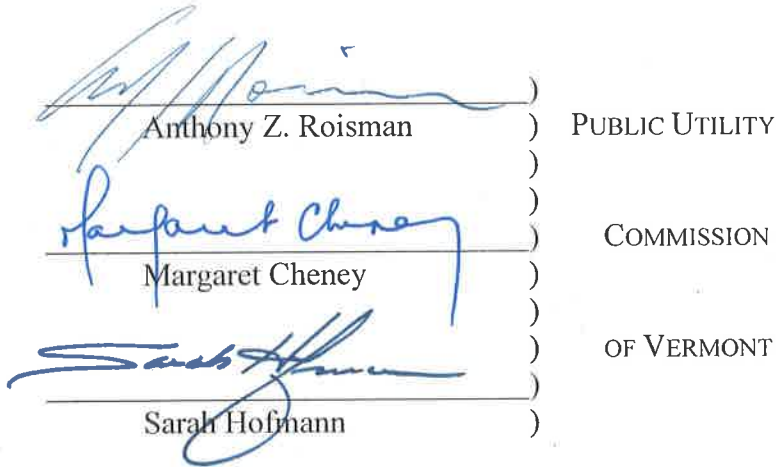 )
Anthony Z. Roisman ) PUBLIC UTILITY
)
)
Margaret Cheney ) COMMISSION
Margaret Cheney )
)
Sarah ) OF VERMONT
)
Sarah Hofmann )